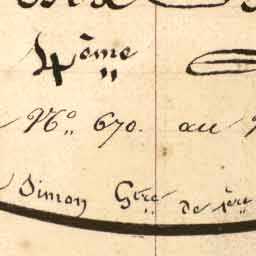 4ème
N° 670. au
Simon Gère de 1ère